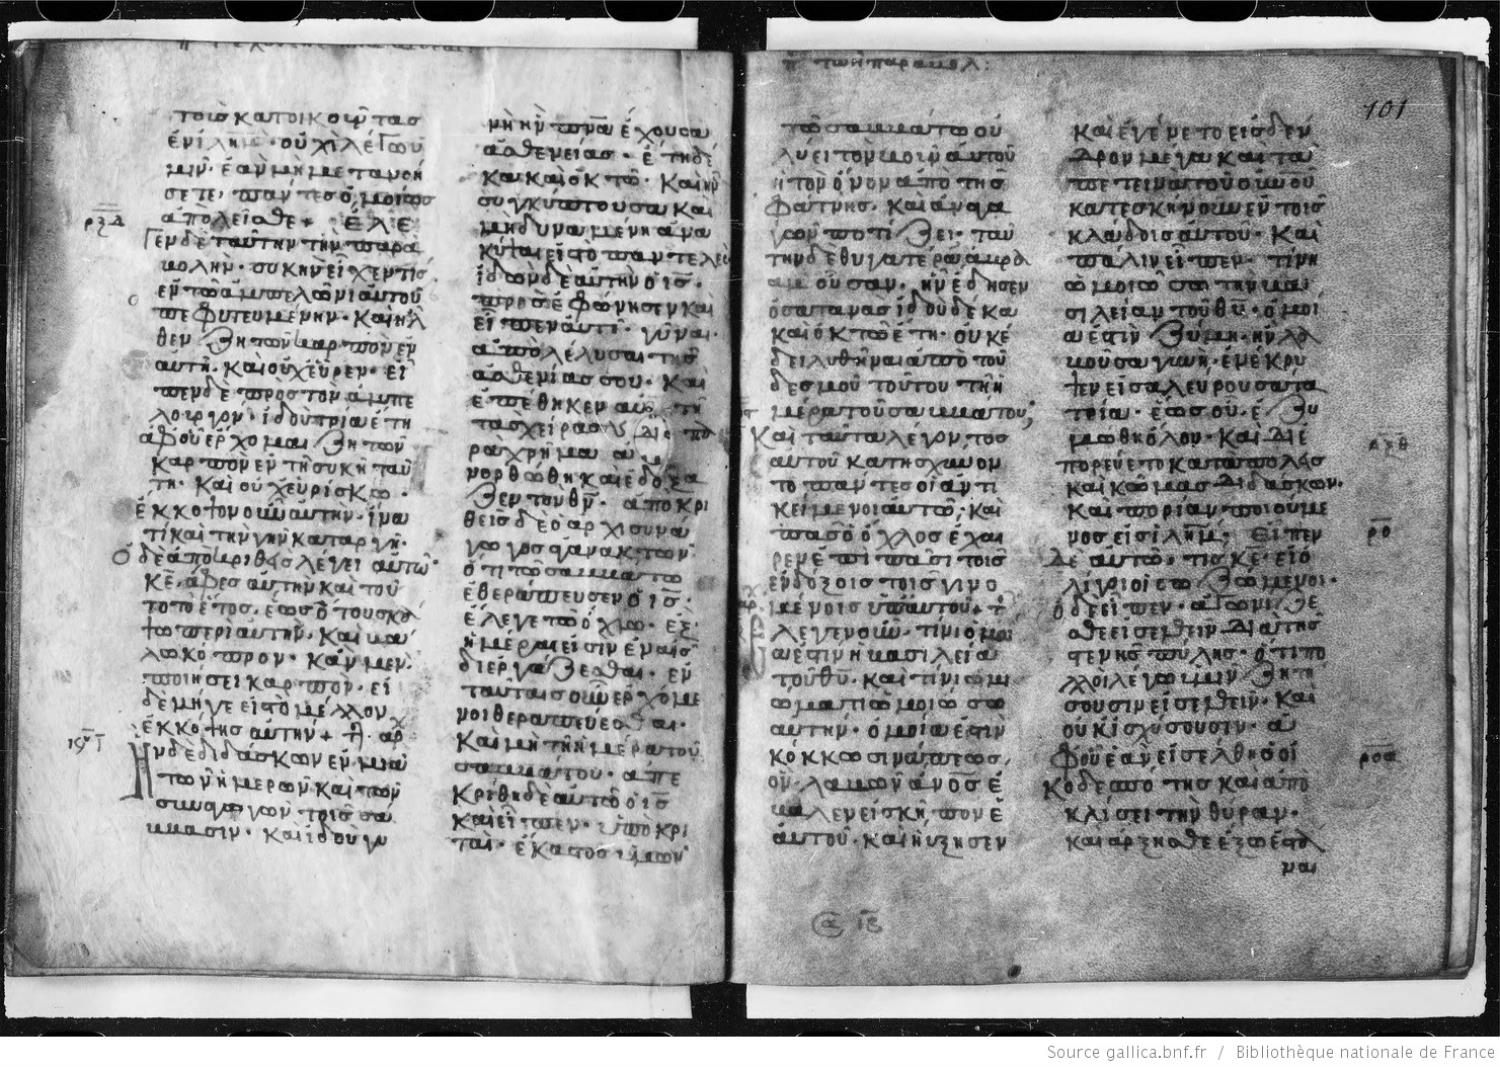 τοισ κατοικοῦντασ
μιν· ἐὰν μὴ μετανοή
σετε, πάντεσ ὁμοίωσ
ἀπολεῖσθε + ἔλε
ρξδ
Γεν δὲ ταύτην τὴν παρα
βολὴν· συκὴν εἶχεν τισ
ἐν τῶ ἀμπελῶνι αὐτοῦ
πεφυτευμένην· καὶ ἦλ
θεν ζητῶν καρπὸν ἐν
αὐτῆ· καὶ οὐχ εὗρεν· εἶ
πεν δὲ πρὸσ τὸν ἀμπε
λουργόν· ἰδοὺ τρία ἔτη
ἀφοῦ ἔρχομαι ζητῶν
καρπὸν ἐν τῆ συκῆ ταύ
τη· καὶ οὐχ εὑρίσκω·
ἔκκοψον οὖν αὐτὴν· ἵνα
τί καὶ τὴν γῆν καταργῆ·
Ὁ δὲ ἀποκριθεὶσ λέγει αὐτῶ·
κε̅, ἄφεσ αὐτὴν καὶ τοῦ
το τὸ ἔτοσ, ἕωσ ὅτου σκά
ψω περὶ αὐτὴν· καὶ βα
λω κόπρον· κἂν μὲν
ποιήσει καρπὸν· εἰ
δὲ μήγε εἰσ τὸ μέλλον
ἐκκόψησ αὐτήν +
Ἠν δὲ διδάσκων ἐν μιᾶ
τῶν ἡμερῶν καὶ τῶν
συναγωγῶν τοῖσ σά
βασιν· καὶ ἰδοὺ γυ
νὴ ἦν πνα̅ ἔχουσα
ἀσθενείασ· ἔτη δέ
κα καὶ ὀκτώ· καὶ ἦν
συγκύπτουσα καὶ
μὴ δυναμένη ἀνα
κύψαι εἰσ τὸ παντελέσ
ἰδὼν δὲ αὐτὴν ὁ ισ̅·
προσεφώνησεν καὶ
εἶπεν αὐτῆ· γύναι·
ἀπολέλυσαι τῆσ
ἀσθενίασ σου· καὶ
ἐπέθηκεν αὐτῆ
τὰσ χεῖρασ
ραχρῆμα
νορθώθη καὶ ἐδόξα
ζεν τὸν θν̅· ἀποκρι
θεὶσ δὲ ὁ ἀρχισυνά
γωγοσ ἀγανακτῶν
ὅτι τῶ σαββάτω
ἐθεράπευσεν ὁ ισ̅·
ἔλεγε τῶ ὄχλω· ἓξ
ἡμέραι εἰσὶν ἐν αἷσ
δεῖ ἐργάζεσθαι· ἐν
ταύταισ οὖν ἐρχόμε
νοι θεραπεύεσθαι·
καὶ μὴ τῆ ἡμέρα τοῦ
σαββάτου· ἀπε
κρίθη δὲ αὐτῶ ὁ ισ̅
καὶ εἶπεν· ὑποκρι
ταί· ἕκαστοσ ὑμῶν
τῶν παραβολ:
101
τῶ σαββάτω οὐ
λύει τὸν βοῦν αὐτοῦ
ἢ τὸν ὄνον ἀπὸ τῆσ
φάτνησ· καὶ ἀπαγα
γὼν ποτίζει· ταύ
την δὲ θυγατέρα ἀβρα
ὰμ οὖσαν· ἣν ἔδησεν
ὁ σατανᾶσ ἰδοὺ δέκα
καὶ ὀκτὼ ἔτη· οὐκ ἔ
δει λυθῆναι ἀπὸ τοῦ
δεσμοῦ τούτου τῆ ἡ
μέρα τοῦ σαββάτου;
Καὶ ταῦτα λέγοντοσ
αὐτοῦ κατησχύνον
το πάντεσ οἱ ἀντι
κείμενοι αὐτῶ· καὶ
πᾶσ ὁ ὄχλοσ ἔχαι
ρεν ἐπὶ πᾶσι τοῖσ
ἐνδόξοισ τοῖσ γινο
μένοισ ὑπ' αὐτοῦ +
ἔλεγεν οὖν· τίνι ὁμοί
α ἐστὶν ἡ βασιλεία
τοῦ θυ̅· καὶ τίνι ὁμοι
ώσω αὐτήν· ὁμοία ἐστὶν
κόκκω σινάπεωσ,
ὃν λαβὼν ἄνοσ̅ ἔ
βαλεν εἰσ κῆπον ἑ
αυτοῦ· καὶ ηὔξησεν
καὶ ἐγένετο εἰσ δέν
δρον μέγα καὶ τὰ
πετεινὰ τοῦ οὐνοῦ
κατεσκήνωσεν τοῖσ
κλάδοισ αὐτοῦ· καὶ
πάλιν εἶπεν· τίνι
ὁμοιώσω τὴν βα
σιλείαν τοῦ θυ̅· ὁμοί
α ἐστὶν ζύμη· ἣν λα
βοῦσα γυνὴ· ἐνέκρυ
ψεν εἰσ ἀλεύρου σάτα
τρία· ἕωσ οὗ ἐζυ
μώθη ὅλον· καὶ διε
ρξθ
πορεύετο κατὰ πόλεισ
καὶ κώμασ διδάσκων·
καὶ πορίαν ποιούμε
νοσ εἰσ ιλημ̅· Εἶπεν
ρο
δέ αὐτῶ, τισ κε̅· εἰ ὀ
λίγοι οἱ σωζόμενοι·
ὁ δὲ εἶπεν· ἀγωνίζε
σθε εἰσελθεῖν διὰ τῆσ
στενῆσ πύλησ· ὅτι πο
λλοὶ λέγω ὑμῖν ζητή
σουσιν εἰσελθεῖν· καὶ
οὐκ ἰσχύσουσιν· ἀ
φοῦ ἐὰν εἰσέλθη ὁ οἰ
ροα
κοδεσπότησ καὶ ἀπο
κλίσει τὴν θύραν·
καὶ ἄρξησθε ἔξω ἑστά
ναι
Source gallica.bnf.fr / Bibliothèque nationale de France